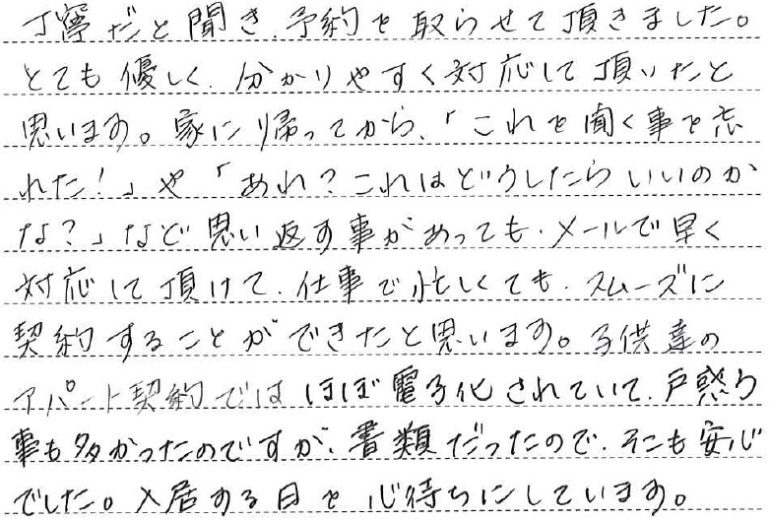 丁寧だと聞き、予約を取らせて頂きました。
とても優しく、分かりやすく対応して頂いたと
思います。家に帰ってから、「これを聞く事を忘
れた!」や「あれ?これはどうしたらいいのか
な?」など思い返す事があっても、メールで早く
対応して頂けて、仕事で忙しくても、スムーズに
契約することができたと思います。子供達の
アパート契約ではほぼ電子化されていて、戸惑う
事も多かったのですが、書類だったので、そこも安心
でした。入居する日を心待ちにしています。